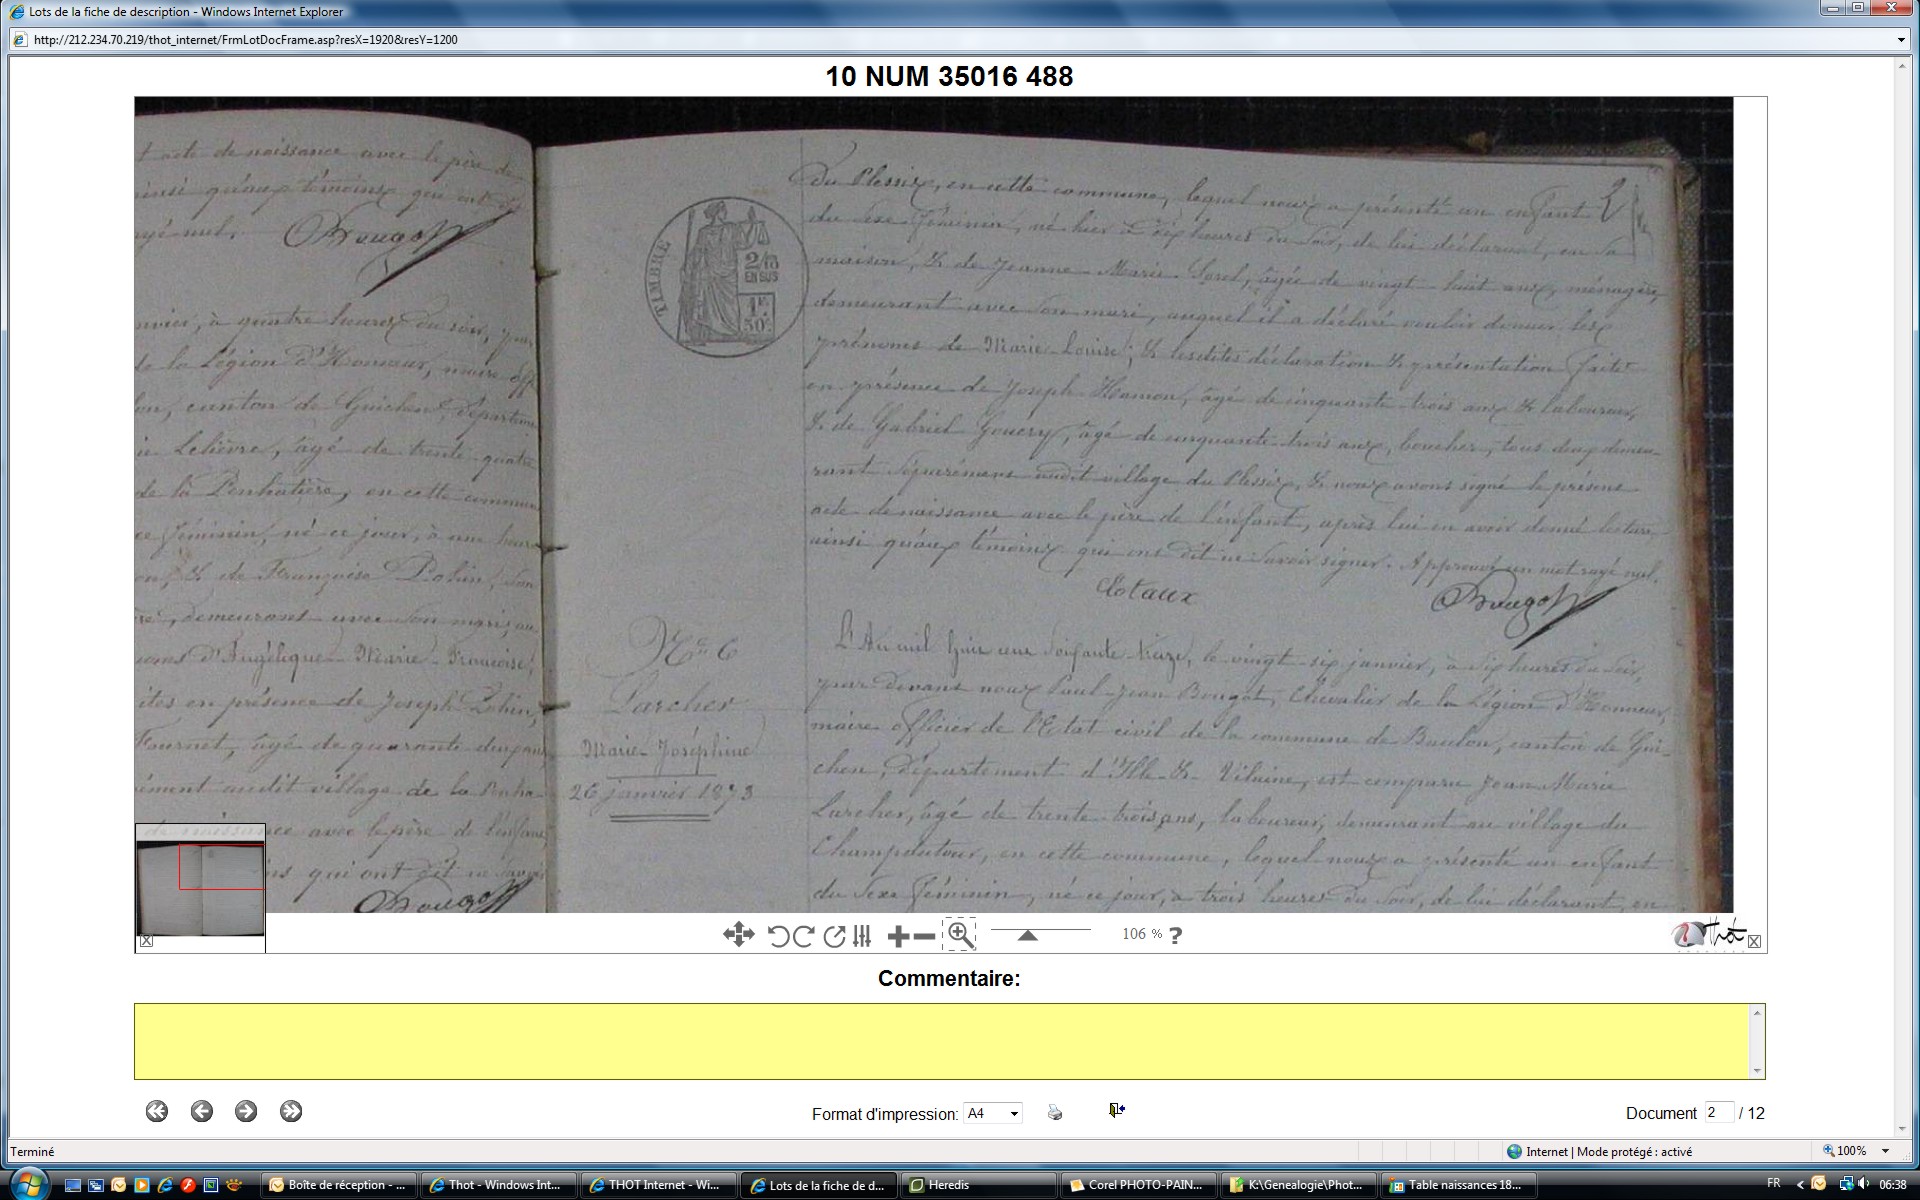 Lots de la fiche de description - Windows Internet Explorer
http://212.234.70.219/thot_internet/FrmLotDocFrame.asp?resX=1920&resY=1200
10 NUM 35016 488
t acte de naissance avec le père de
ainsi qu'aux témoins qui ont
rayé nul.
Bougot
nvier, à quatre heures du soir, par
de la Légion d'Honneur, maire off
lon, canton de Guichen, départem
Lelièvre, âgé de trente quatre
de la Penhatière, en cette commun
xe féminin, né ce jour, à une heure
on, & de Françoise Pohin, san
demeurant avec son mari, au
noms d'Angélique Marie Françoise,
ites en présence de Joseph Pohin,
Fournet, âgé de quarante deux ans
ément audit village de la Penha-
de naissance avec le père de l'enfant
ns qui ont dit ne savoir
Bougot
TIMBRE
2/10
EN SUS
1F.
50c.
2
du Plessix, en cette commune, lequel nous a présenté un enfant
du sexe féminin, né hier à six heures du soir, de lui déclarant, en sa
maison, & de Jeanne Marie Sorel, âgée de vingt huit ans, ménagère,
demeurant avec son mari, auquel il a déclaré vouloir donner les
prénoms de Marie Louise; & lesdites déclaration & présentation faites
en présence de Joseph Hamon, âgé de cinquante trois ans & laboureur,
& de Gabriel Gouery, âgé de cinquante trois ans, boucher, tous deux demeu-
rant séparément audit village du Plessix, & nous avons signé le présent
acte de naissance avec le père de l'enfant, après lui en avoir donné lecture
ainsi qu'aux témoins qui ont dit ne savoir signer. Approuvé un mot rayé nul.
Bougot
No 6
Larcher
Marie Joséphine
26 janvier 1873
L'An mil huit cent soixante treize, le vingt six janvier, à six heures du soir,
par devant nous Paul Jean Bougot, Chevalier de la Légion d'Honneur,
maire officier de l'Etat civil de la commune de Baulon, canton de Gui-
chen, département d'Ille & Vilaine, est comparu Jean Marie
Larcher, âgé de trente trois ans, laboureur, demeurant au village du
en cette commune, lequel nous a présenté un enfant
du sexe féminin, né ce jour, à trois heures du soir, de lui déclarant, en
106 % ?
Thot
Commentaire:
Format d'impression: A4
Document 2 / 12
Terminé
Internet | Mode protégé : activé
100%
Boîte de réception - ...
Thot - Windows Int...
THOT Internet - Wi...
Lots de la fiche de d...
Heredis
Corel PHOTO-PAIN...
K:\Genealogie\Phot...
Table naissances 18...
FR
06:38